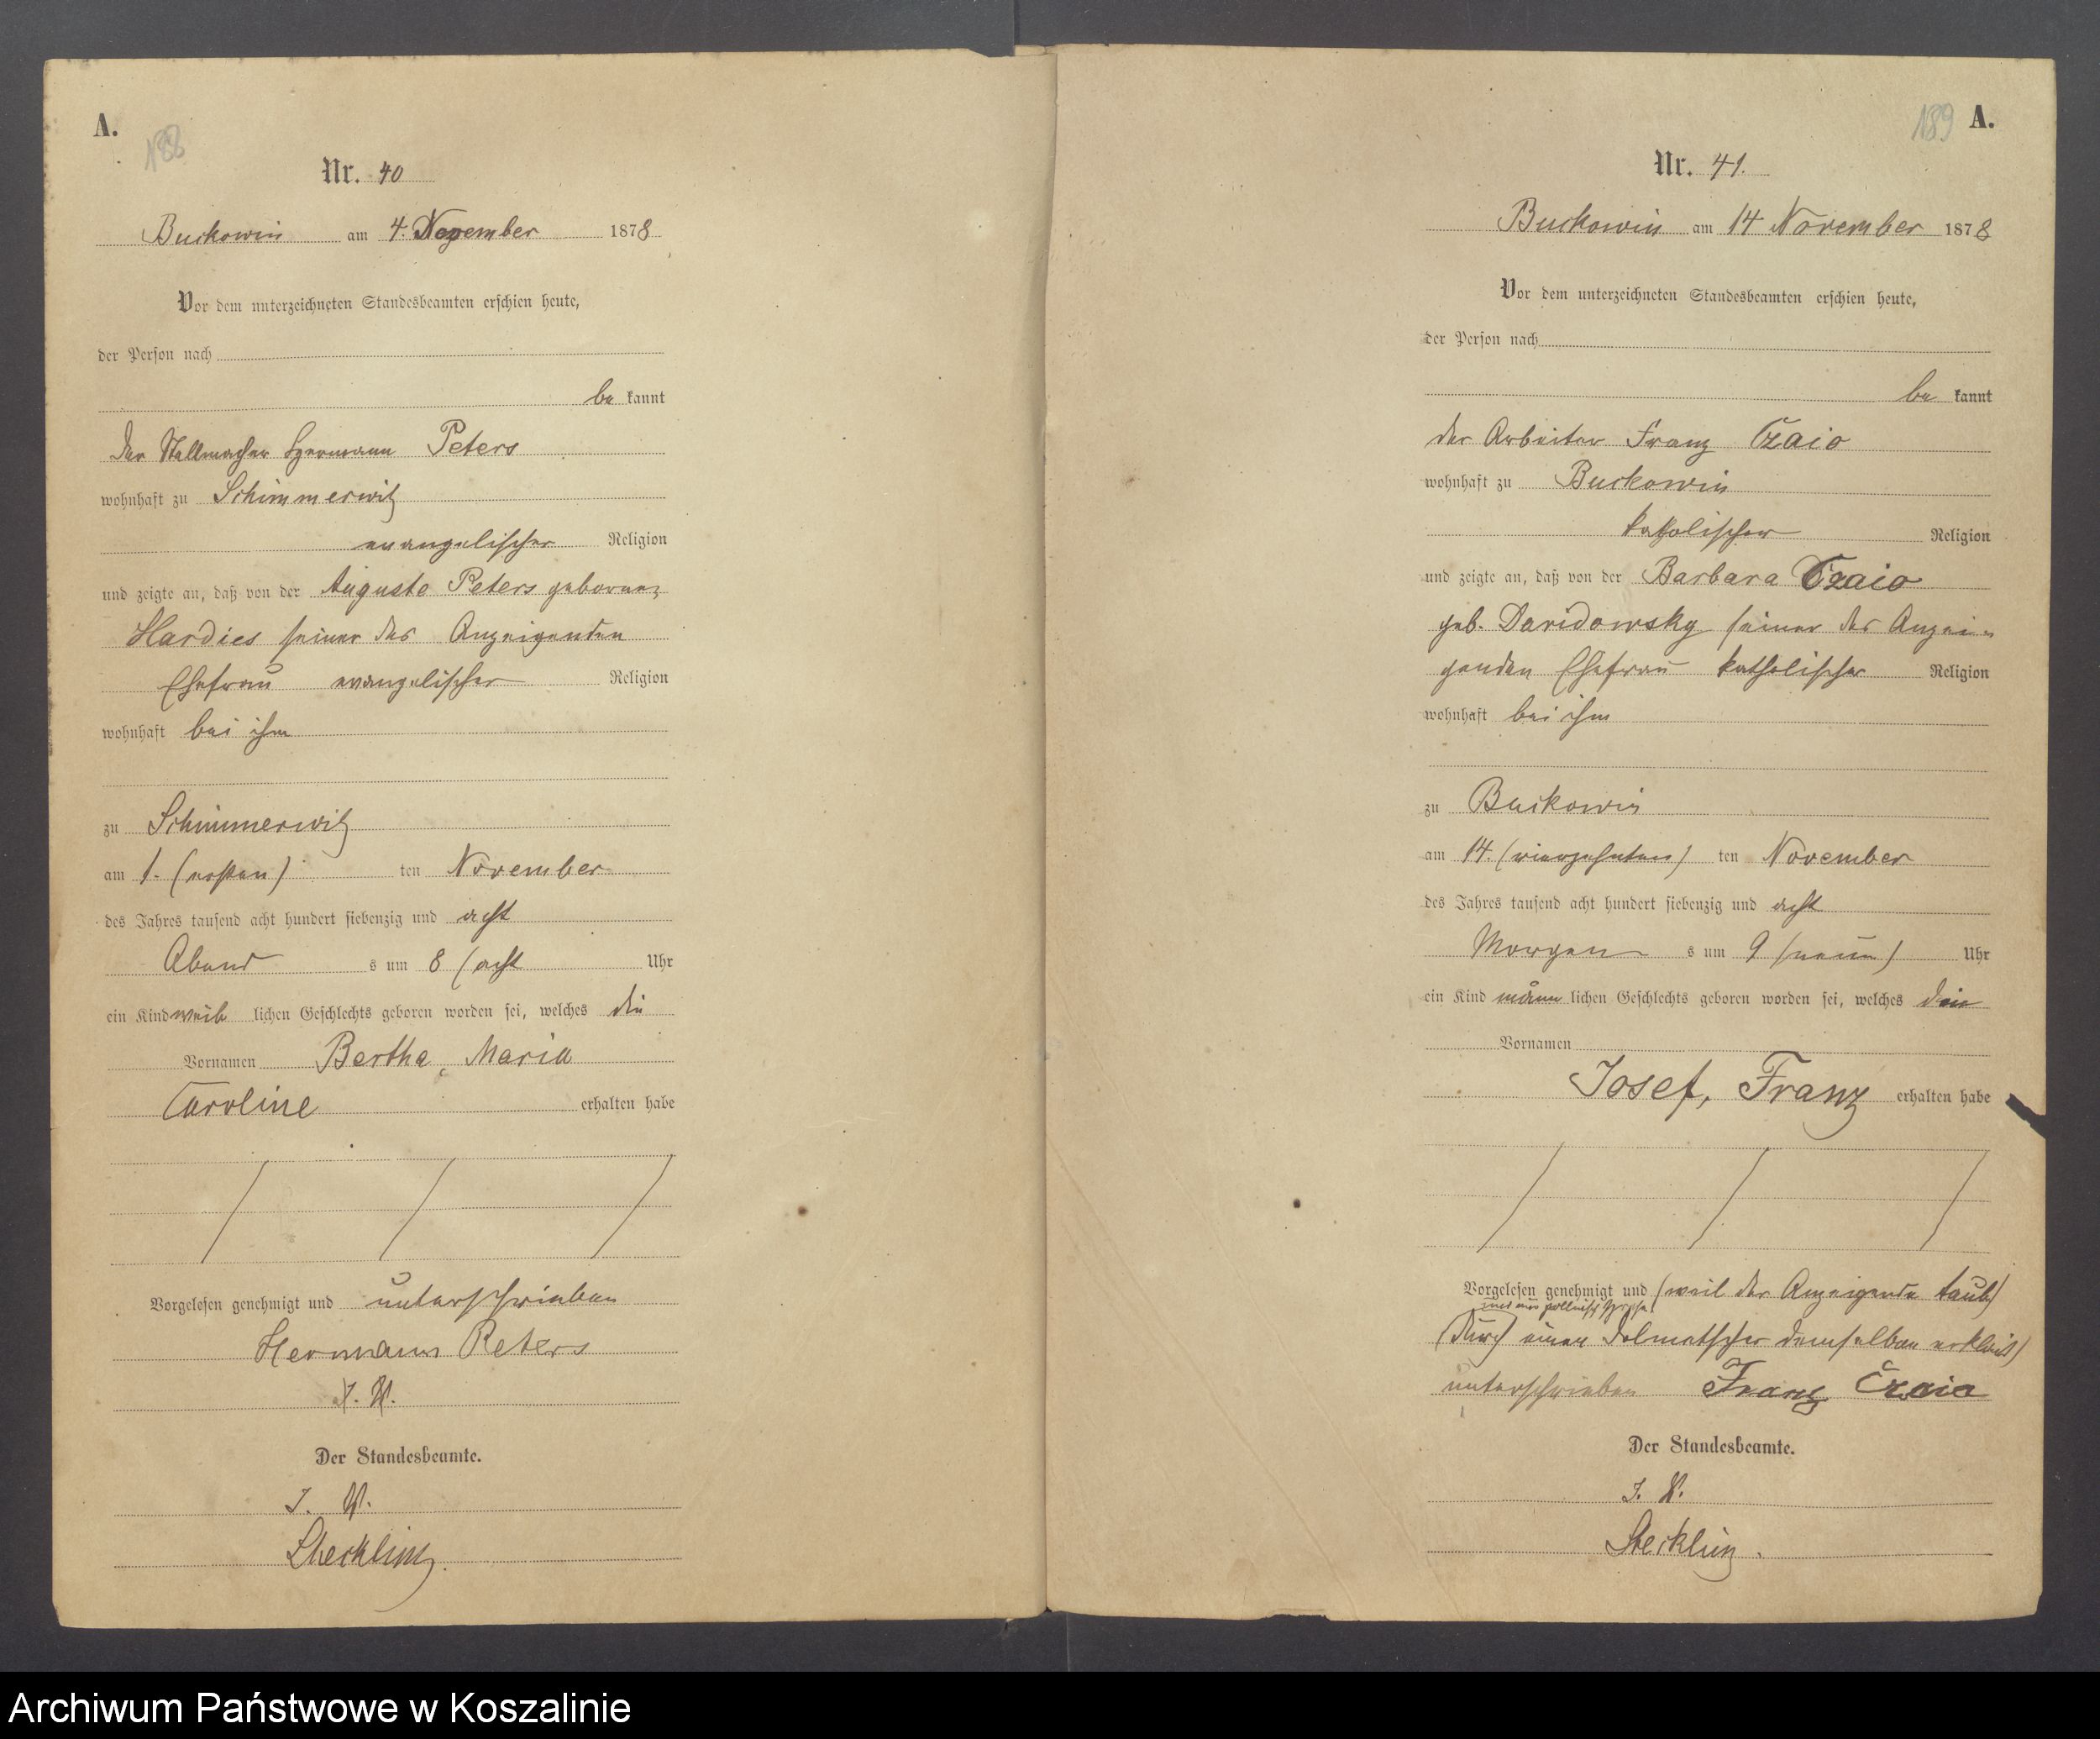 A.
188
Nr. 40
Buckowin am 4. November 1878
Vor dem unterzeichneten Standesbeamten erschien heute,
der Person nach
be kannt
der Stellmacher Hermann Peters
wohnhaft zu Schimmerwitz
evangelischer Religion
und zeigte an, daß von der Auguste Peters geborene
Hardies seiner des Anzeigenden
Ehefrau evangelischer Religion
wohnhaft bei ihm
zu Schimmerwitz
am 1. (ersten) ten November
des Jahres tausend acht hundert siebenzig und acht
Abend s um 8 (acht Uhr
ein Kind weib lichen Geschlechts geboren worden sei, welches die
Vornamen Bertha, Maria
Caroline erhalten habe
Vorgelesen genehmigt und unterschrieben
Hermann Peters
J. V.
Der Standesbeamte.
J. V.
Steckling.
189 A.
Nr. 41.
Buckowin am 14 November 1878
Vor dem unterzeichneten Standesbeamten erschien heute,
der Person nach
be kannt
der Arbeiter Franz Czaio
wohnhaft zu Buckowin
katholischer Religion
und zeigte an, daß von der Barbara Czaio
geb. Davidowsky seiner des Anzei-
genden Ehefrau katholischer Religion
wohnhaft bei ihm
zu Buckowin
am 14. (vierzehnten) ten November
des Jahres tausend acht hundert siebenzig und acht
Morgen s um 9 (neun) Uhr
ein Kind männ lichen Geschlechts geboren worden sei, welches die
Vornamen
Josef, Franz erhalten habe
Vorgelesen genehmigt und (weil der Anzeigende taub)
und nur pollnisch
(durch einen Dolmatscher demselben erklärt)
unterschrieben Franz Czaio
Der Standesbeamte.
J. V.
Steckling.
Archiwum Państwowe w Koszalinie